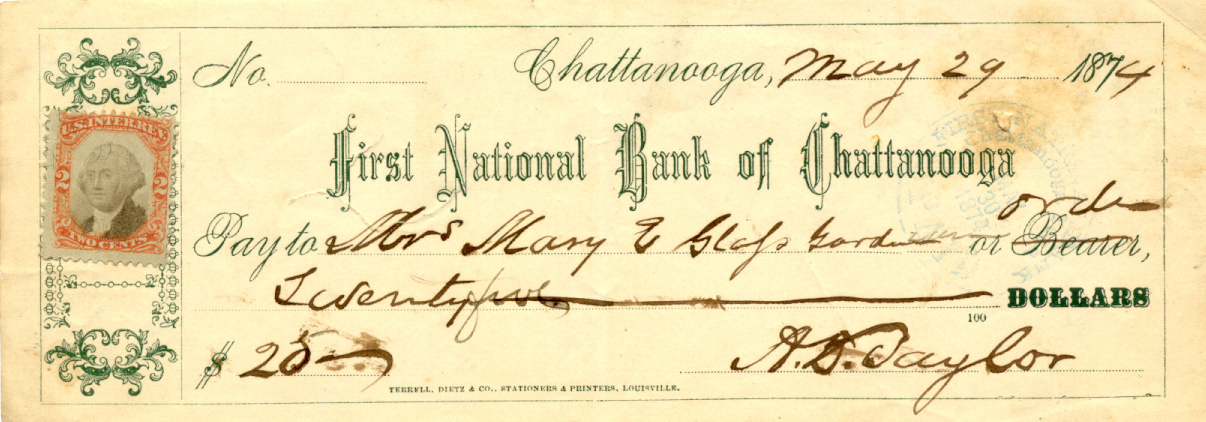 No. Chattanooga, May 29 1874
U.S. INTER. REV.
First National Bank of Chattanooga
2 2
TWO CENTS
order
Pay to Mrs Mary E Glass or Bearer,
Twenty five DOLLARS
100
$ 25 A. D. Taylor
TERRELL, DIETZ & CO., STATIONERS & PRINTERS, LOUISVILLE.